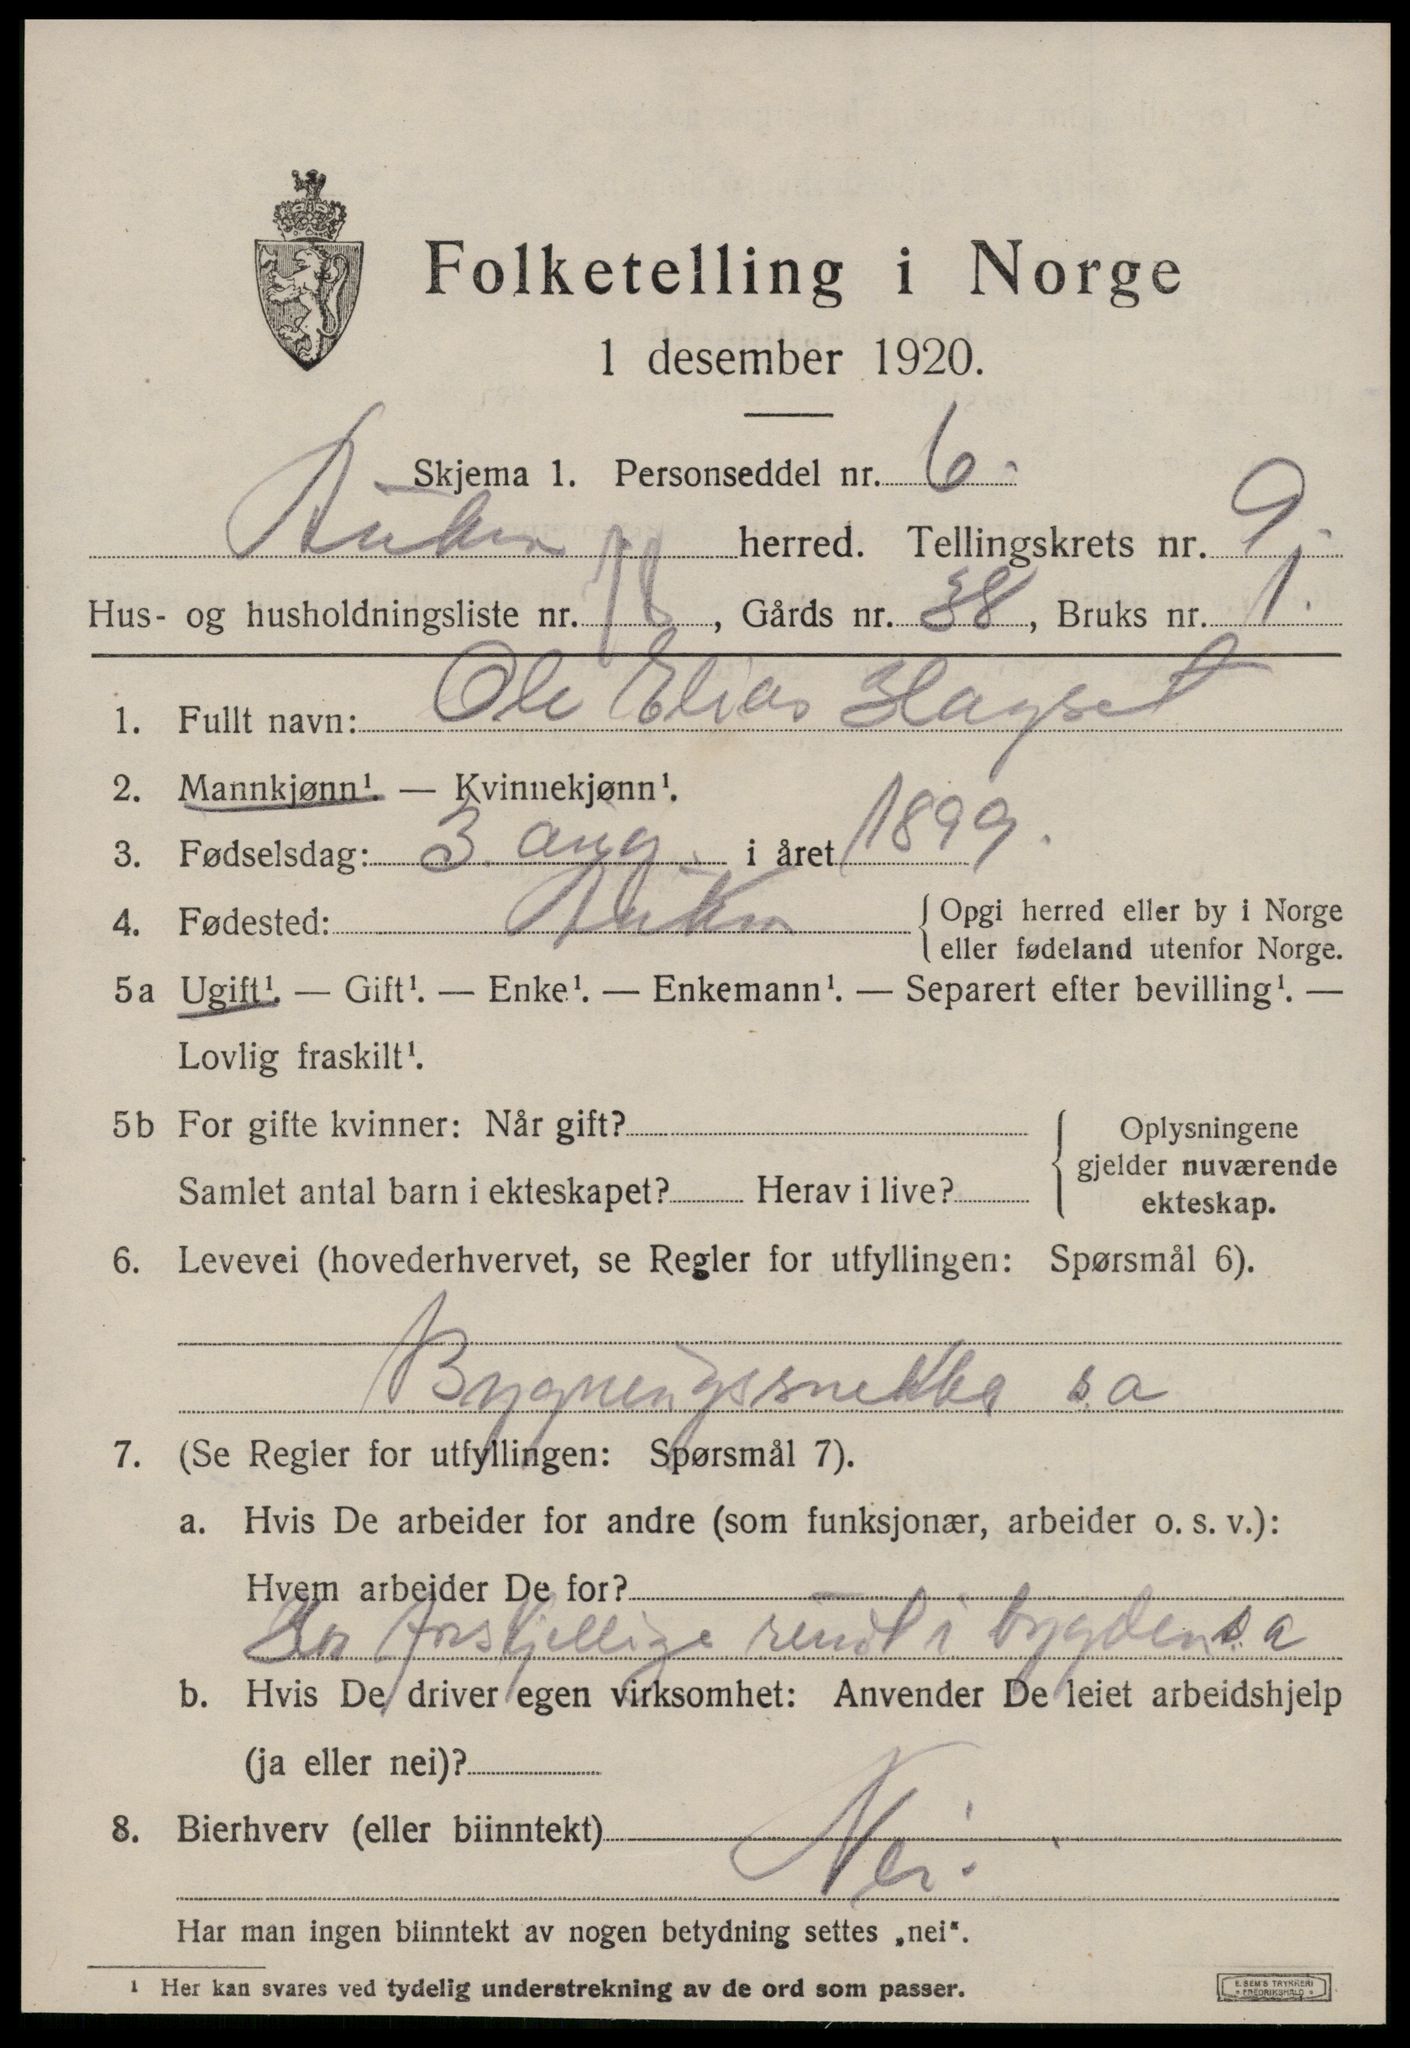 Folketelling i Norge
1 desember 1920.
Skjema 1. Personseddel nr. 6.
Aukra herred. Tellingskrets nr. 9.
Hus- og husholdningsliste nr. , Gårds nr. 38, Bruks nr. 1.
1. Fullt navn: Ole Elias Hagset
2. Mannkjønn¹. — Kvinnekjønn¹.
3. Fødselsdag: 3. aug. i året 1899.
4. Fødested: Aukra { Opgi herred eller by i Norge
eller fødeland utenfor Norge.
5a Ugift¹. — Gift¹. — Enke¹. — Enkemann¹. — Separert efter bevilling¹. —
Lovlig fraskilt¹.
5b For gifte kvinner: Når gift? { Oplysningene
gjelder nuværende
Samlet antal barn i ekteskapet? Herav i live? ekteskap.
6. Levevei (hovederhvervet, se Regler for utfyllingen: Spørsmål 6).
Bygningssnekker s.a
7. (Se Regler for utfyllingen: Spørsmål 7).
a. Hvis De arbeider for andre (som funksjonær, arbeider o. s. v.):
Hvem arbeider De for?
forskjellige rundt i bygden s.a
b. Hvis De driver egen virksomhet: Anvender De leiet arbeidshjelp
(ja eller nei)?
8. Bierhverv (eller biinntekt)
Nei.
Har man ingen biinntekt av nogen betydning settes „nei".
¹ Her kan svares ved tydelig understrekning av de ord som passer.
E. SEM'S TRYKKERI
FREDRIKSHALD